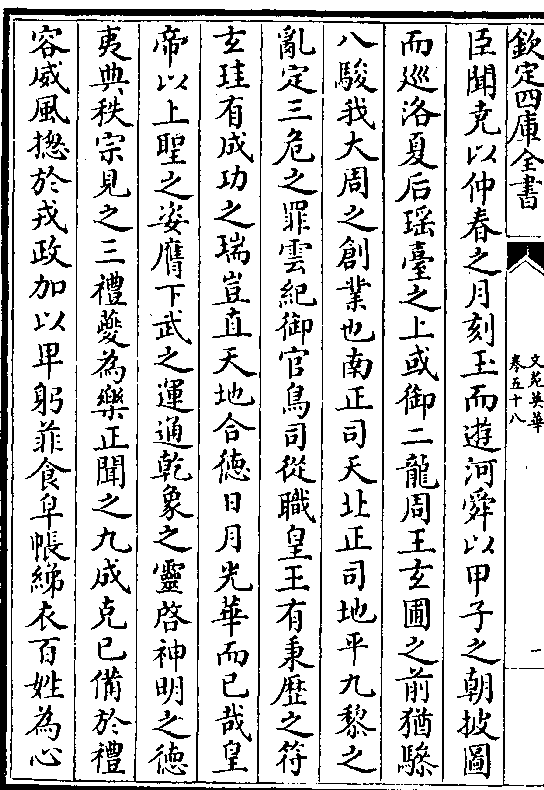 欽定四庫全書
文苑英華
卷五十八
一
臣聞堯以仲春之月刻玉而遊河舜以甲子之朝披圖
而廵洛夏后瑶臺之上或御二龍周王玄圃之前猶驂
八駿我大周之創業也南正司天北正司地平九黎之
亂定三危之罪雲紀御官鳥司從職皇王有秉歴之符
玄珪有成功之瑞豈直天地合徳日月光華而已哉皇
帝以上聖之姿膺下武之運通乾象之靈啓神明之徳
夷典秩宗見之三禮夔為樂正聞之九成克己備於禮
容威風揔於戎政加以卑躬菲食皁帳綈衣百姓為心